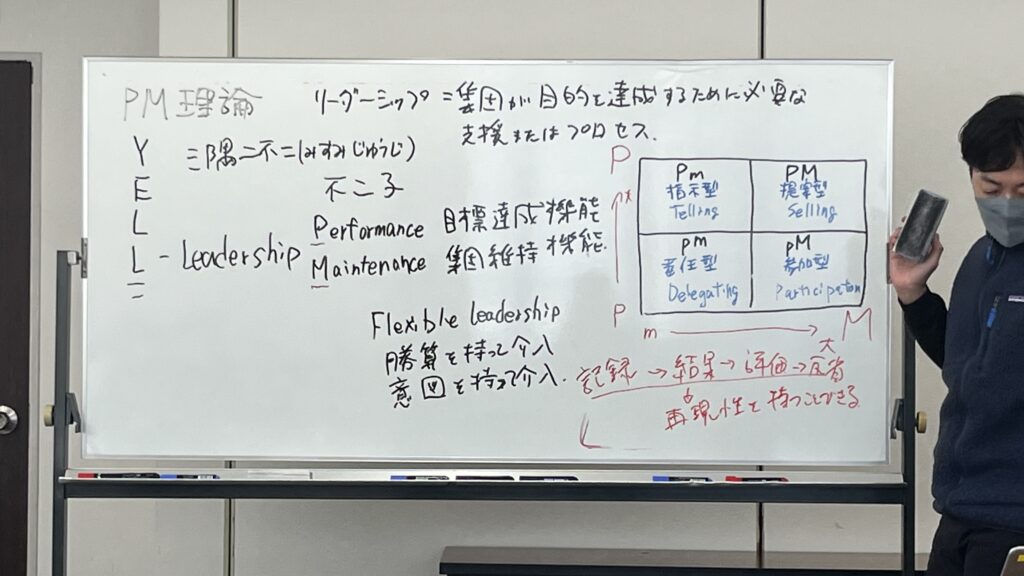 PM理論
リーダーシップ = 集団が目的を達成するために必要な
支援またはプロセス.
Y
E
L
L - Leadership
三隅二不二(みすみじゅうじ)
不二子
Performance 目標達成機能
Maintenance 集団維持機能.
Flexible Leadership
勝算を持って介入
意図を持って介入.
P
大
Pm
指示型
Telling
PM
提案型
Selling
pm
委任型
Delegating
pM
参加型
Participation
P
m → M
大
記録→結果→評価→反省
再現性を持つことができる